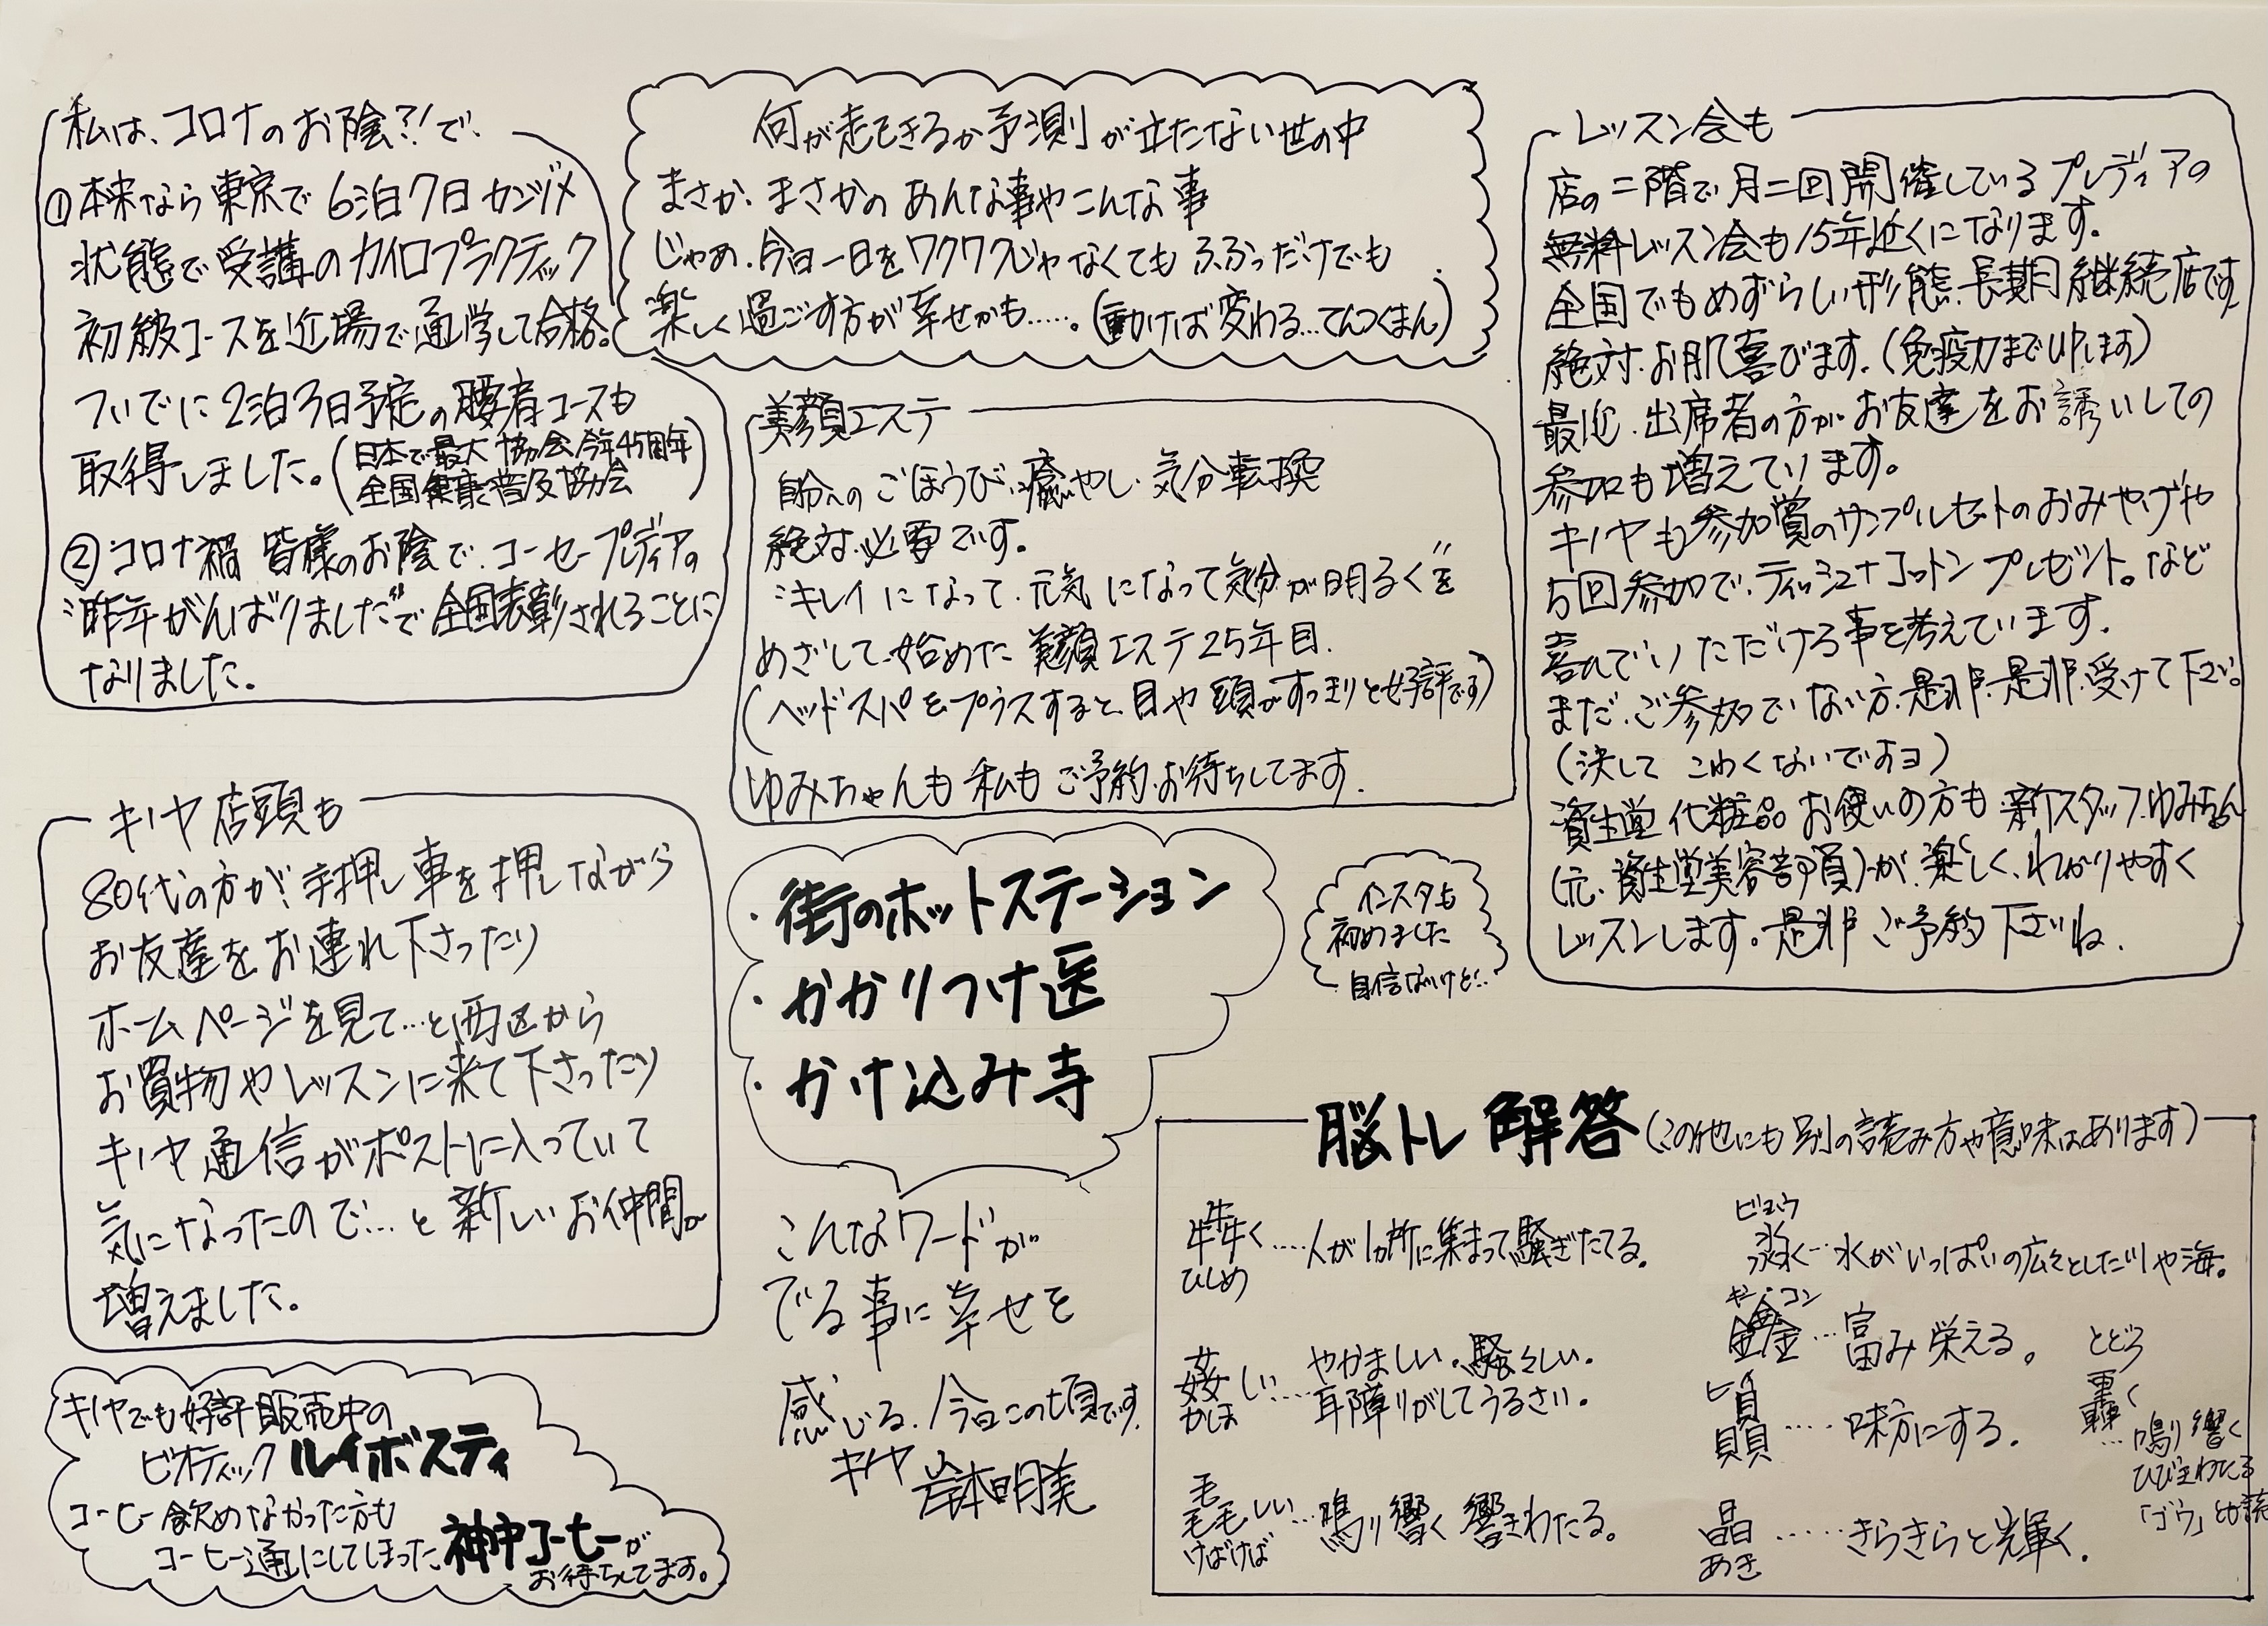 私は、コロナのお陰?!で、
①本来なら東京で6泊7日カンヅメ
状態で受講のカイロプラクティック
初級コースを近場で通学して合格。
ついでに2泊3日予定の腰痛コースも
取得しました。(日本で最大協会今年45周年
全国健康普及協会)
②コロナ禍 皆様のお陰で、コーセープレディアの
"昨年がんばりました"で全国表彰されることに
なりました。
何が起きるか予測が立たない世の中
まさか、まさかの あんな事やこんな事
じゃあ、今日一日をワクワクじゃなくても ふふっだけでも
楽しく過ごす方が幸せかも.....。(動けば変わる...てんつくまん)
美顔エステ
自分へのごほうび、癒やし、気分転換
絶対必要です。
"キレイになって、元気になって気分が明るく"を
めざして始めた美顔エステ25年目.
(ヘッドスパをプラスすると、目や頭がすっきりと好評です)
ゆみちゃんも私もご予約お待ちしてます.
レッスン会も
店の二階で月二回開催しているプレディアの
無料レッスン会も15年近くになります。
全国でもめずらしい形態、長期月継続店です
絶対、お肌喜びます。(免疫力までUPします)
最近、出席者の方がお友達をお誘いしての
参加も増えています。
キノヤも参加賞のサンプルセットのおみやげや
5回参加で、ティッシュ+コットンプレゼント。など
喜んでいただける事を考えています。
まだ、ご参加でない方、是非、是非、受けて下さい。
(決して こわくないですヨ)
資生堂化粧品お使いの方も 新スタッフゆみちゃん
(元、資生堂美容部員)が、楽しく、わかりやすく
レッスンします。是非ご予約下さいね.
キノヤ店頭も
80代の方が、手押し車を押しながら
お友達をお連れ下さったり
ホームページを見て...と西区から
お買物やレッスンに来て下さったり
キノヤ通信がポストに入っていて
気になったので...と新しいお仲間が
増えました。
・街のホットステーション
・かかりつけ医
・かけ込み寺
インスタも
初めました
自信ないけど..
こんなワードが
でる事に幸せを
感じる、今日この頃です.
キノヤ 岸本明美
キノヤでも好評販売中の
ビオティック ルイボスティ
コーヒー飲めなかった方も
コーヒー通にしてしまった、神ヤコーヒーが
お待ちしてます。
脳トレ 解答(この他にも別の読み方や意味はあります)
犇く....人が1カ所に集まって騒ぎたてる。
ひしめ
姦しい....やかましい。騒々しい.
かしま 耳障りがしてうるさい。
毳毳しい...鳴り響く 響きわたる。
けばけば
ビョウ
淼く...水がいっぱいの広々とした川や海。
キン・コン
鑫...富み栄える。
ヒイ
贔....味方にする.
晶.....きらきらと輝く.
あき
とどろ
轟く
...鳴り響く
ひびきわたる
「ゴウ」とも読